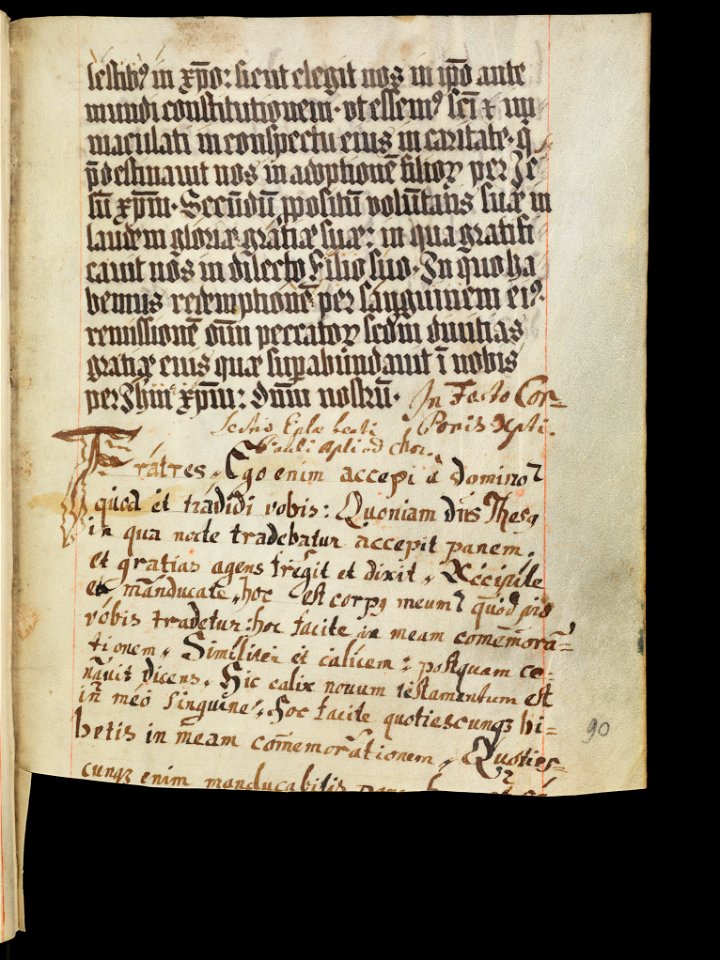 lestib⁹ in xp̄o: sicut elegit nos in ip̄o ante
mundi constitutionem. vt essem⁹ sc̄i ⁊ im
maculati in conspectu eius in caritate. q̄
p̄destinauit nos in adoptionē filioꝝ per Je
sū xp̄m. Secūdū ꝓpositū volūtatis suæ in
laudem gloriæ gratiæ suæ: in qua gratifi
cauit nos in dilecto filio suo. In quo ha
bemus redemptionē per sanguinem ei⁹.
remissionē oīm peccatoꝝ scd̄m diuitias
gratiæ eius quæ suꝑabundauit ī nobis
per Jhm̄ xp̄m: dn̄m nostrū.
In Festo Cor-
Poris Xpti.
Lectio Eplæ beati
Pauli apli ad Chor.
Fratres. Ego enim accepi a domino
quod et tradidi vobis: Quoniam dn̄s Jhesꝯ
in qua nocte tradebatur accepit panem.
et gratias agens fregit et dixit. Accipite
et manducate, hoc est corpꝯ meum quod pro
vobis tradetur: hoc facite in meam com̄emora=
tionem. Similiter et calicem: postquam ce-
nauit dicens. Hic calix nouum testamentum est
in meo sanguine. Hoc facite quotiescunqꝫ bi=
betis in meam com̄emorationem. Quoties-
cunqꝫ enim manducabitis
90